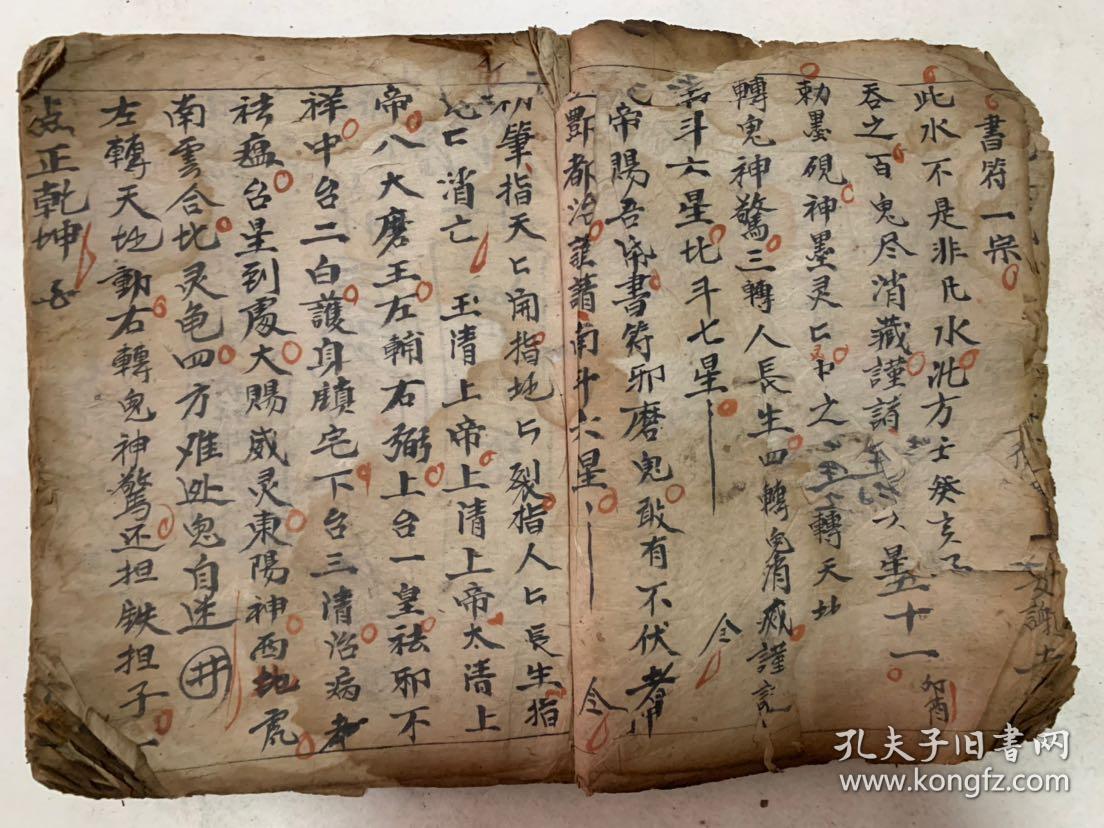 書符一宗
此水不是非凡水洗方壬癸亥
吞之百鬼尽消藏謹請 星五十一 卯酉
勅墨硯神墨灵匕 之 轉天地
轉鬼神驚三轉人長生四轉鬼消滅謹
斗六星北斗七星 令
帝賜吾 書符邪磨鬼敢有不伏者
酆都治 謹請南斗六星 令
筆指天匕開指地匕裂指人匕長生指
鬼匕消亡 玉清上帝上清上帝太清上
帝八大磨王左輔右弼上台一皇祛邪不
祥中台二白護身鎮宅下台三清治病
祛瘟台星到處大賜威灵東陽神西地
南雲合北灵龟四方难 鬼自迷 井
左轉天地動右轉鬼神驚还担铁担子
正乾坤
謝土
孔夫子旧書网
www.kongfz.com